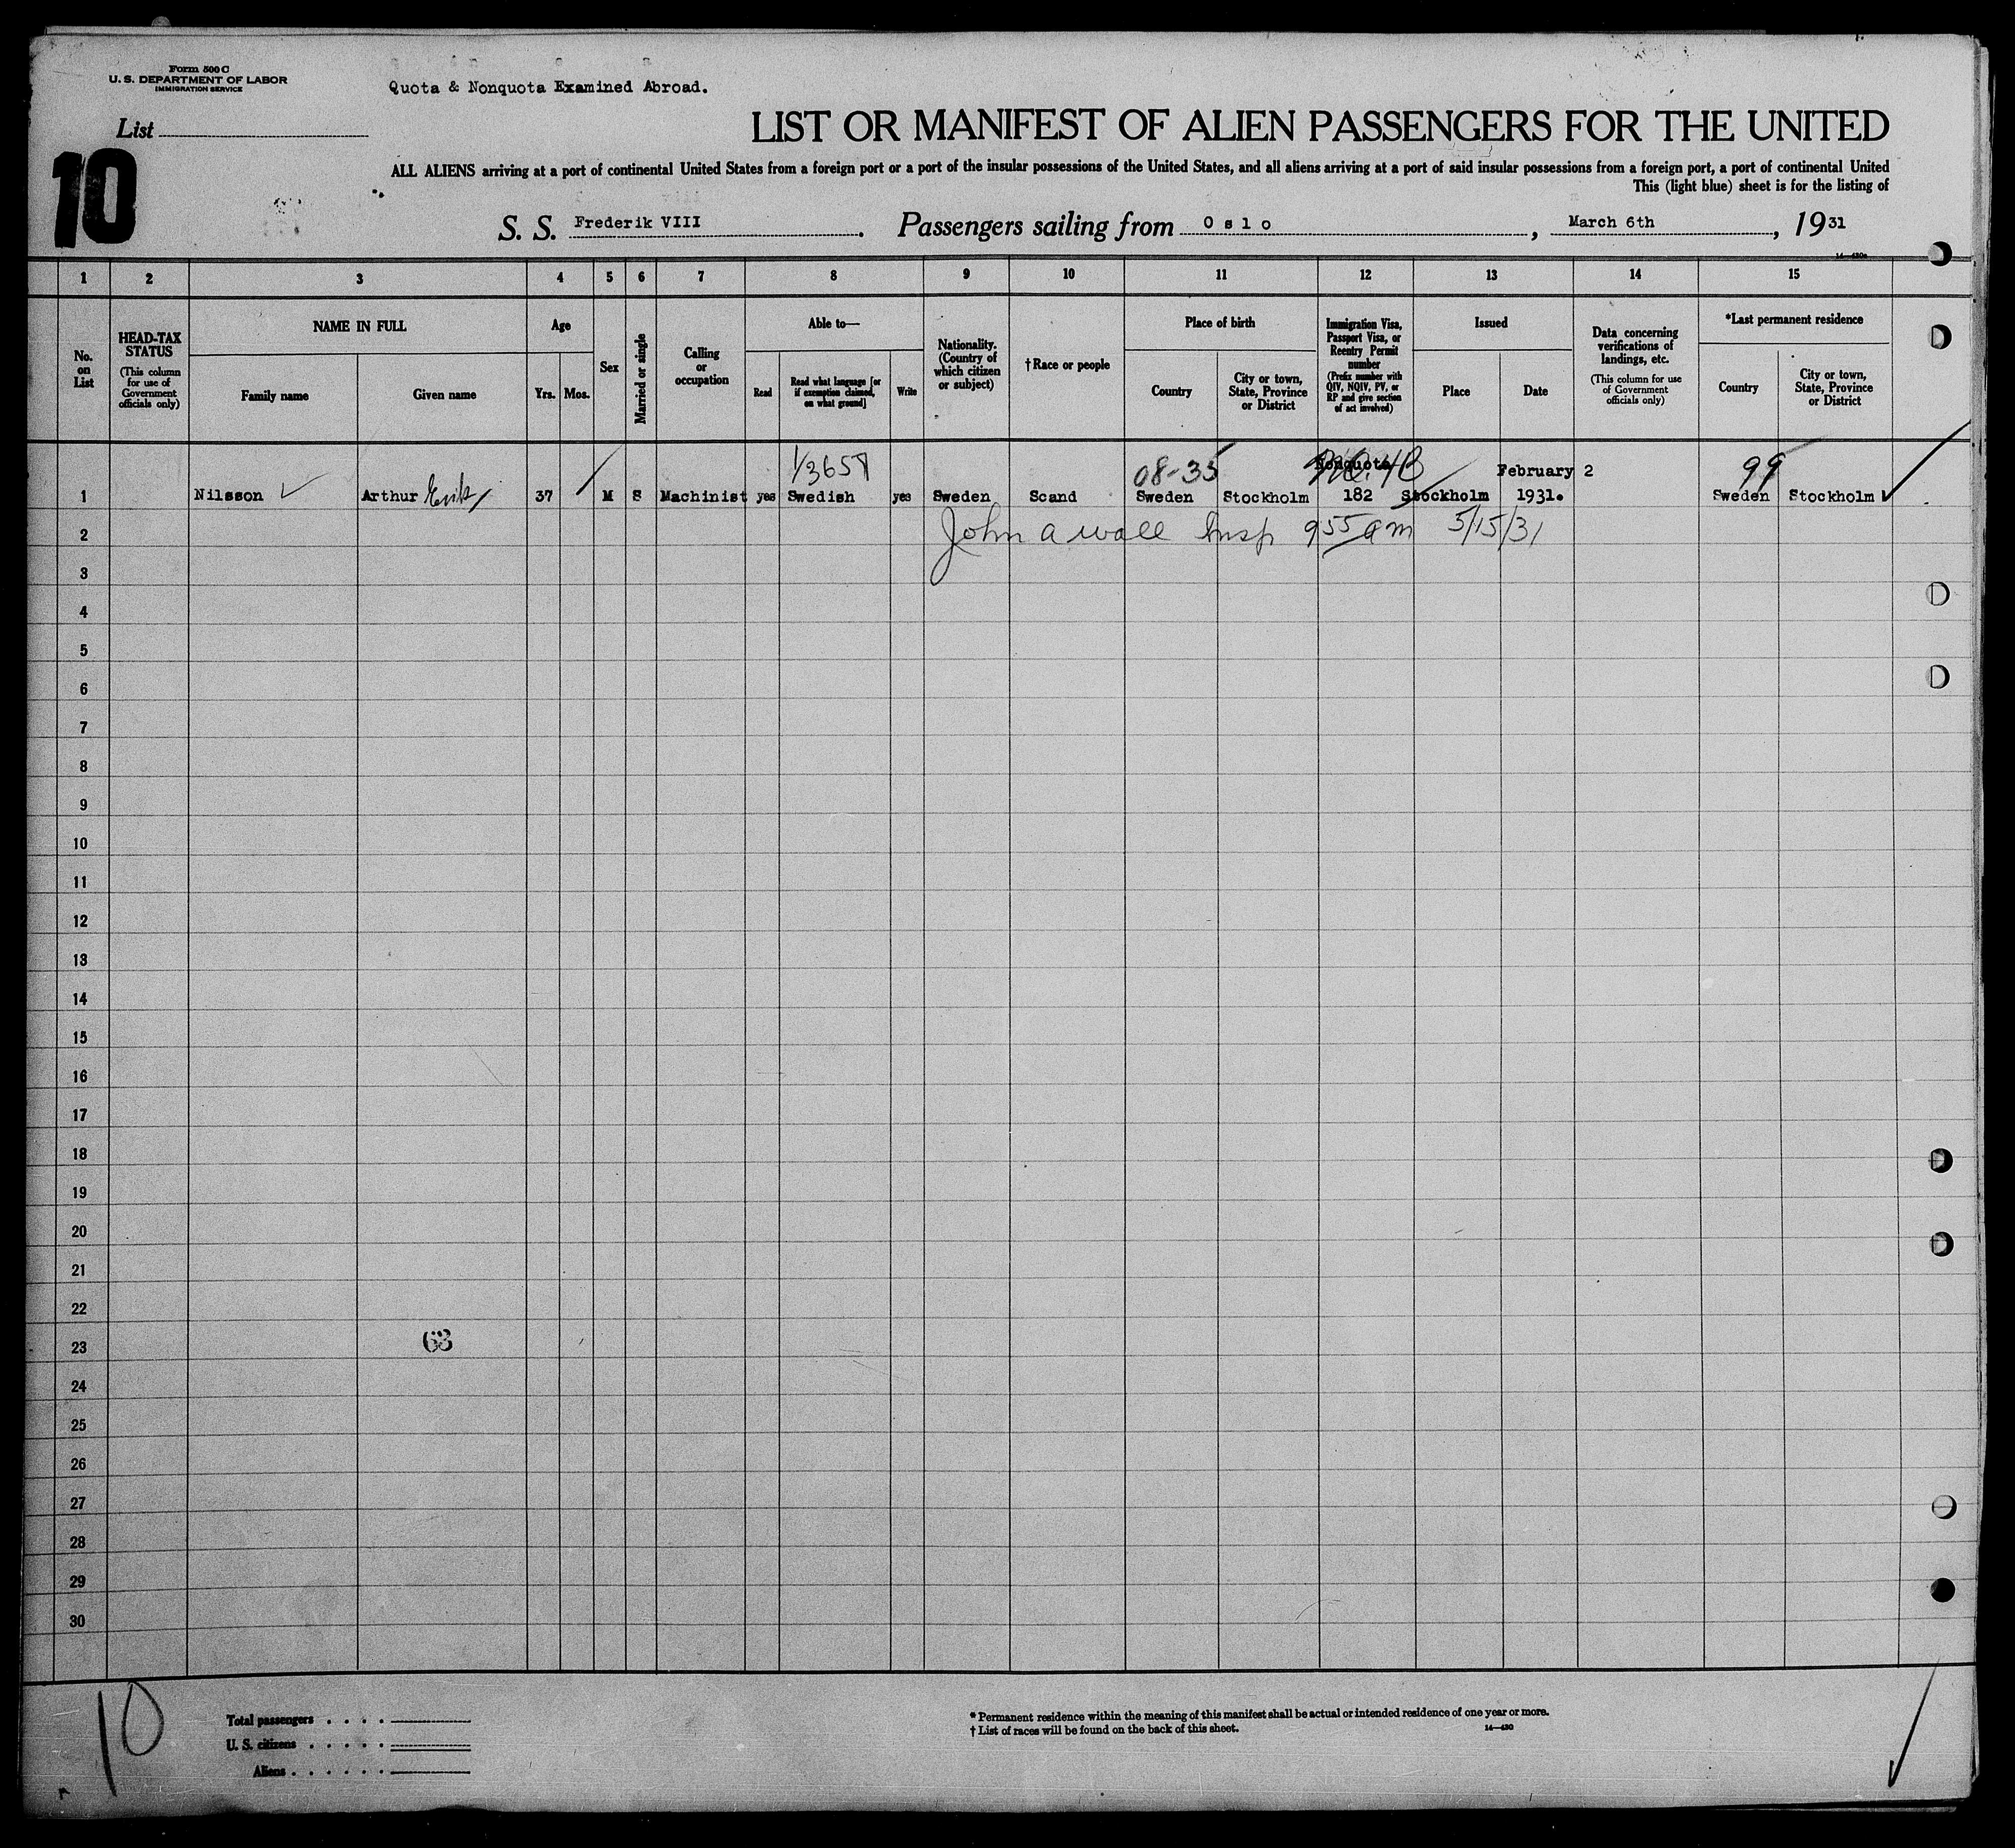 Form 500 C
U. S. DEPARTMENT OF LABOR
IMMIGRATION SERVICE
Quota & Nonquota Examined Abroad.
List
10
LIST OR MANIFEST OF ALIEN PASSENGERS FOR THE UNITED
ALL ALIENS arriving at a port of continental United States from a foreign port or a port of the insular possessions of the United States, and all aliens arriving at a port of said insular possessions from a foreign port, a port of continental United
This (light blue) sheet is for the listing of
S. S. Frederik VIII. Passengers sailing from Oslo, March 6th, 1931
14—430a
1 2 3 4 5 6 7 8 9 10 11 12 13 14 15
No. on List
HEAD-TAX STATUS
(This column for use of Government officials only)
NAME IN FULL
Family name
Given name
Age
Yrs. Mos.
Sex
Married or single
Calling or occupation
Able to—
Read
Read what language [or if exemption claimed, on what ground]
Write
Nationality. (Country of which citizen or subject)
†Race or people
Place of birth
Country
City or town, State, Province or District
Immigration Visa, Passport Visa, or Reentry Permit number
(Prefix number with QIV, NQIV, PV, or RP and give section of act involved)
Issued
Place
Date
Data concerning verifications of landings, etc.
(This column for use of Government officials only)
*Last permanent residence
Country
City or town, State, Province or District
08-35 Nonquota February 2 99
1 Nilsson Arthur Erik 37 M S Machinist yes Swedish yes Sweden Scand Sweden Stockholm 182 Stockholm 1931. Sweden Stockholm
2 John A Wall Insp 9 55 am 5/15/31
3
4
5
6
7
8
9
10
11
12
13
14
15
16
17
18
19
20
21
22
23 63
24
25
26
27
28
29
30
10
Total passengers . . . .
U. S. citizens . . . . .
Aliens . . . . . .
* Permanent residence within the meaning of this manifest shall be actual or intended residence of one year or more.
† List of races will be found on the back of this sheet.
14—430